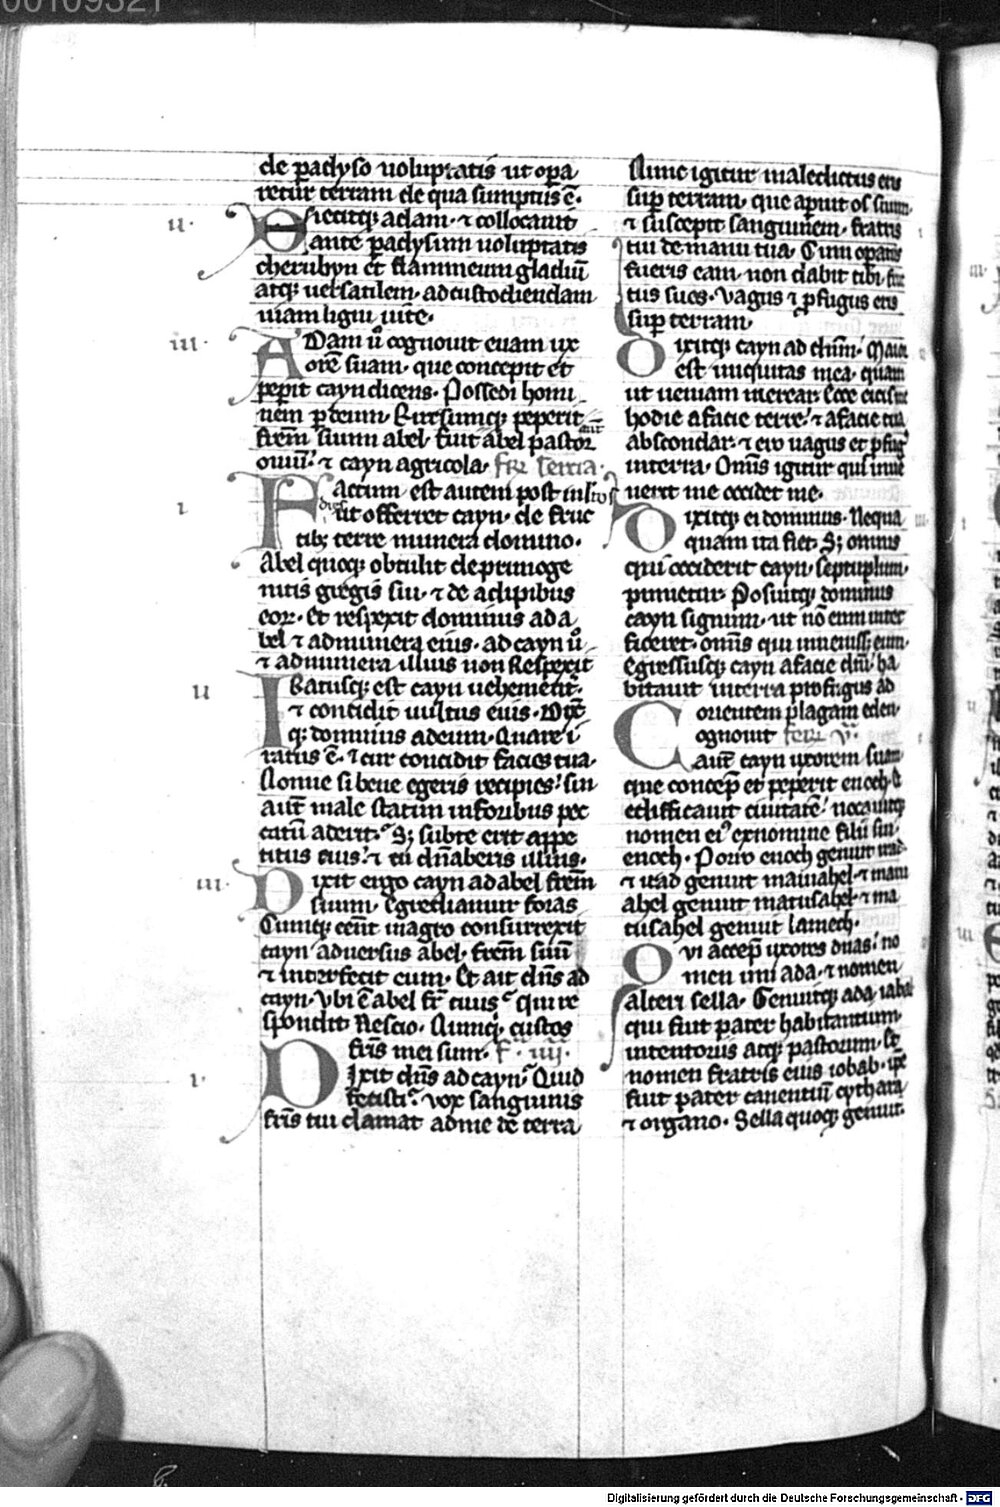 00109321
de padyso uoluptatis ut opa
retur terram de qua sumptus ē.
ii. Eiecitq; adam. ⁊ collocauit
ante padysum uoluptatis
cherubyn et flammeum gladiū
atq; uersatilem. ad custodiendam
uiam ligni uite.
iii. ADam ū cognouit euam ux
orē suam. que concepit et
peperit cayn dicens. Possedi homi
nem p deum. Rursumq; peperit
frem̄ suum abel. fuit aūt abel pastor
ouiū. ⁊ cayn agricola. Fr̄ tercia.
i. FActum est autem post multos
dies ut offerret cayn. de fruc
tib; terre munera domino.
Abel quoq; obtulit de primoge
nitis gregis sui. ⁊ de adipibus
eor. et respexit dominus ad a
bel ⁊ ad munera eius. ad cayn ū
⁊ ad munera illius non Respexit
ii IRatusq; est cayn uehement̄.
⁊ concidit uultus eius. Dixit
q; dominus ad eum. Quare i
ratus ē. ⁊ cur concidit facies tua.
Nonne si bene egeris recipies. sin
aut̄ male statim in foribus pec
catū aderit. S; subte erit appe
titus eius. ⁊ tu dn̄aberis illius.
iii. Dixit ergo cayn ad abel frem̄
suum. Egrediamur foras
Cumq; cēnt in agro consurrexit
cayn aduersus abel. frem̄ suū
⁊ interfecit eum. Et ait dn̄s ad
cayn. Vbi ē abel fr̄ tuus. qui re
spondit Nescio. Numq; custos
fris̄ mei sum. F. iiij.
i. DIxit dn̄s ad cayn. Quid
fecisti. vox sanguinis
fris̄ tui clamat ad me de terra
Nunc igitur maledictus eris
sup terram. que aperuit os suum.
⁊ suscepit sanguinem. fratris
tui de manu tua. Cum operatus
fueris eam. non dabit tibi fruc
tus suos. Vagus ⁊ pfugus eris
sup terram.
Dixitq; cayn ad dn̄m. Maior
est iniquitas mea. quam
ut ueniam merear. Ecce eicis me
hodie a facie terre. ⁊ a facie tua
abscondar. ⁊ ero uagus et pfug
in terra. Omīs igitur qui inue
nerit me occidet me.
Dixitq; ei dominus. Nequa
quam ita fiet. S; omnis
qui occiderit cayn. septuplum.
punietur. Posuitq; dominus
cayn signum. ut nō eum inter
ficeret. omīs qui inuenisset eum.
Egressusq; cayn a facie dn̄i. ha
bitauit in terra profugus ad
orientem plagam eden.
Cognouit ferr̄ v.
aut̄ cayn uxorem suam
que concep̄ et peperit enoch. ⁊
edifficauit ciuitatē. uocauitq;
nomen ei ex nomine filii sui.
enoch. Porro enoch genuit irad.
⁊ irad genuit mauiahel. ⁊ maui
ahel genuit matusahel. ⁊ ma
tusahel genuit lamech.
Qui accep̄ uxores duas. no
men uni ada. ⁊ nomen
alteri sella. Genuitq; ada iabel
qui fuit pater habitantium
in tentoriis atq; pastorum. Et
nomen fratris eius iobab. ipē
fuit pater canentiū cythara
⁊ organo. Sella quoq; genuit.
Digitalisierung gefördert durch die Deutsche Forschungsgemeinschaft - DFG